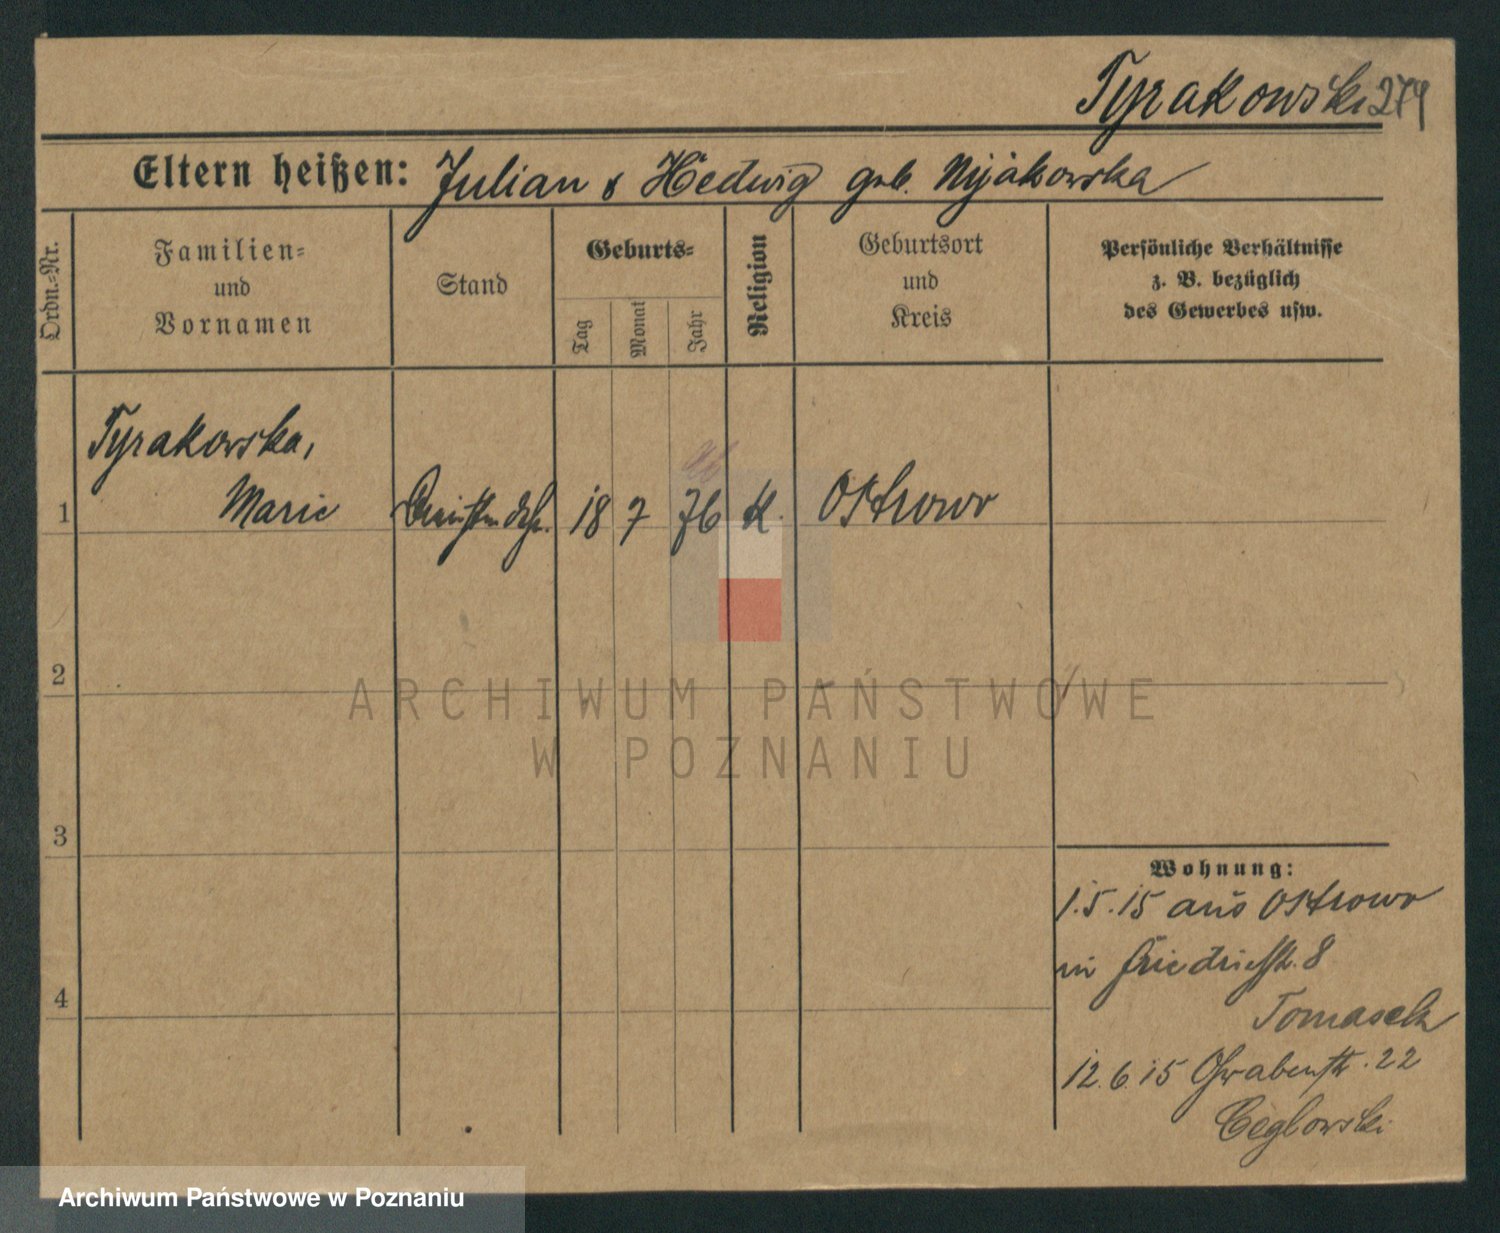 Tyrakowski 279
Eltern heißen: Julian & Hedwig geb. Nijakowska
Ordn.-Nr.
Familien-
und
Vornamen
Stand
Geburts-
Tag
Monat
Jahr
Religion
Geburtsort
und
Kreis
Persönliche Verhältnisse
z. B. bezüglich
des Gewerbes usw.
Tyrakowska,
1 Marie 18 7 76 K. Ostrowo
2
3
4
Wohnung:
1.5.15 aus Ostrowo
in Friedrichstr. 8
Tomasek
12.6.15 Grabenstr. 22
Ceglowski
ARCHIWUM PAŃSTWOWE
W POZNANIU
Archiwum Państwowe w Poznaniu